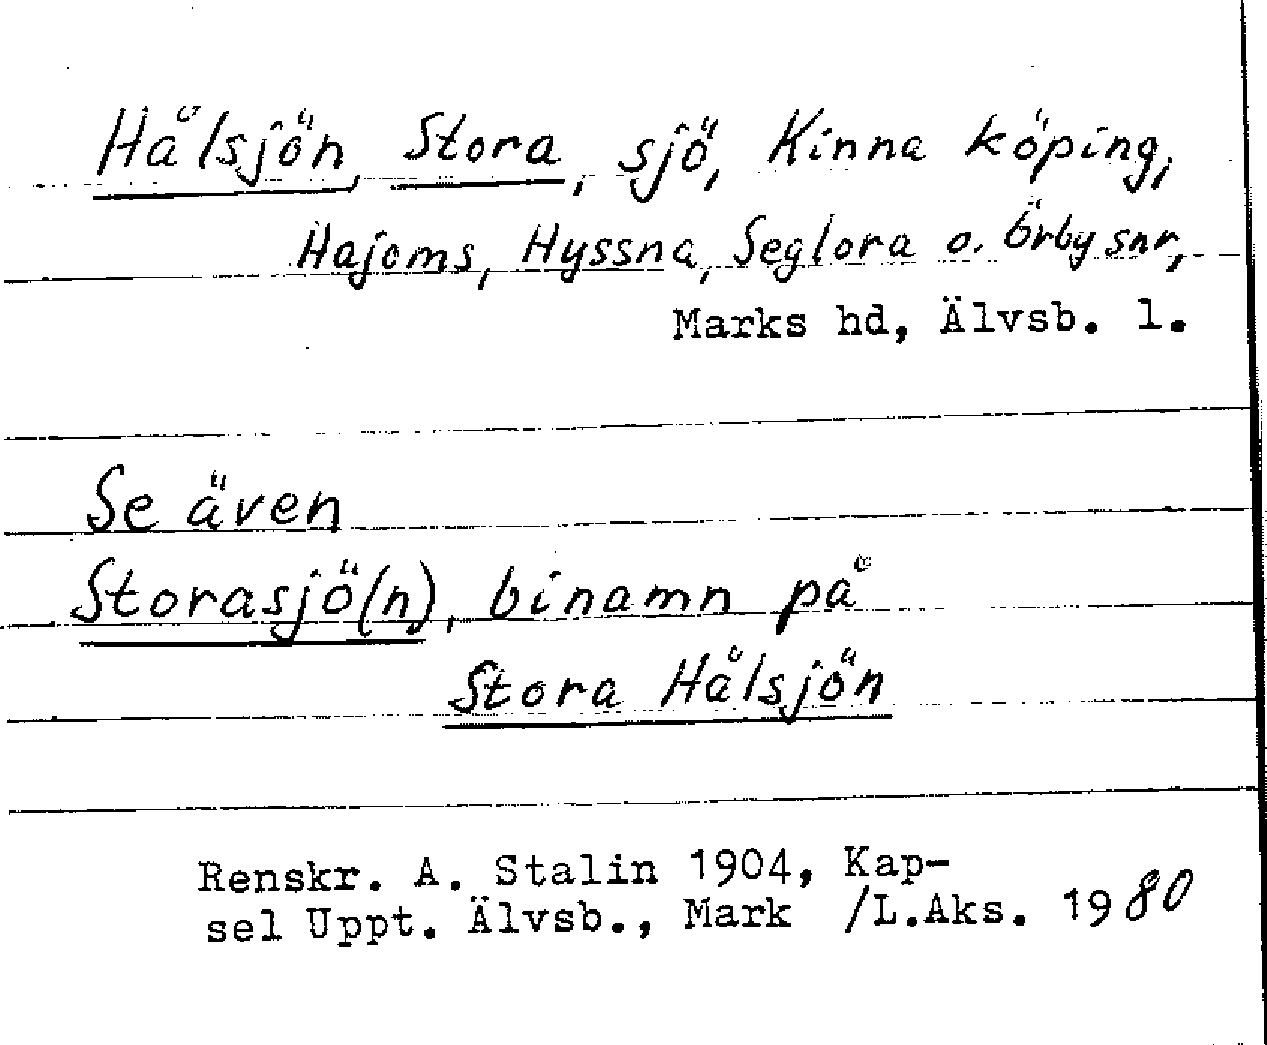 Hålsjön, Stora, sjö, Kinna köping,
Hajoms, Hyssna, Seglora o. Örby snr,
Marks hd, Älvsb. l.
Se även
Storasjö(n), binamn på
Stora Hålsjön
Renskr. A. Stalin 1904, Kap-
sel Uppt. Älvsb., Mark /L.Aks. 1980